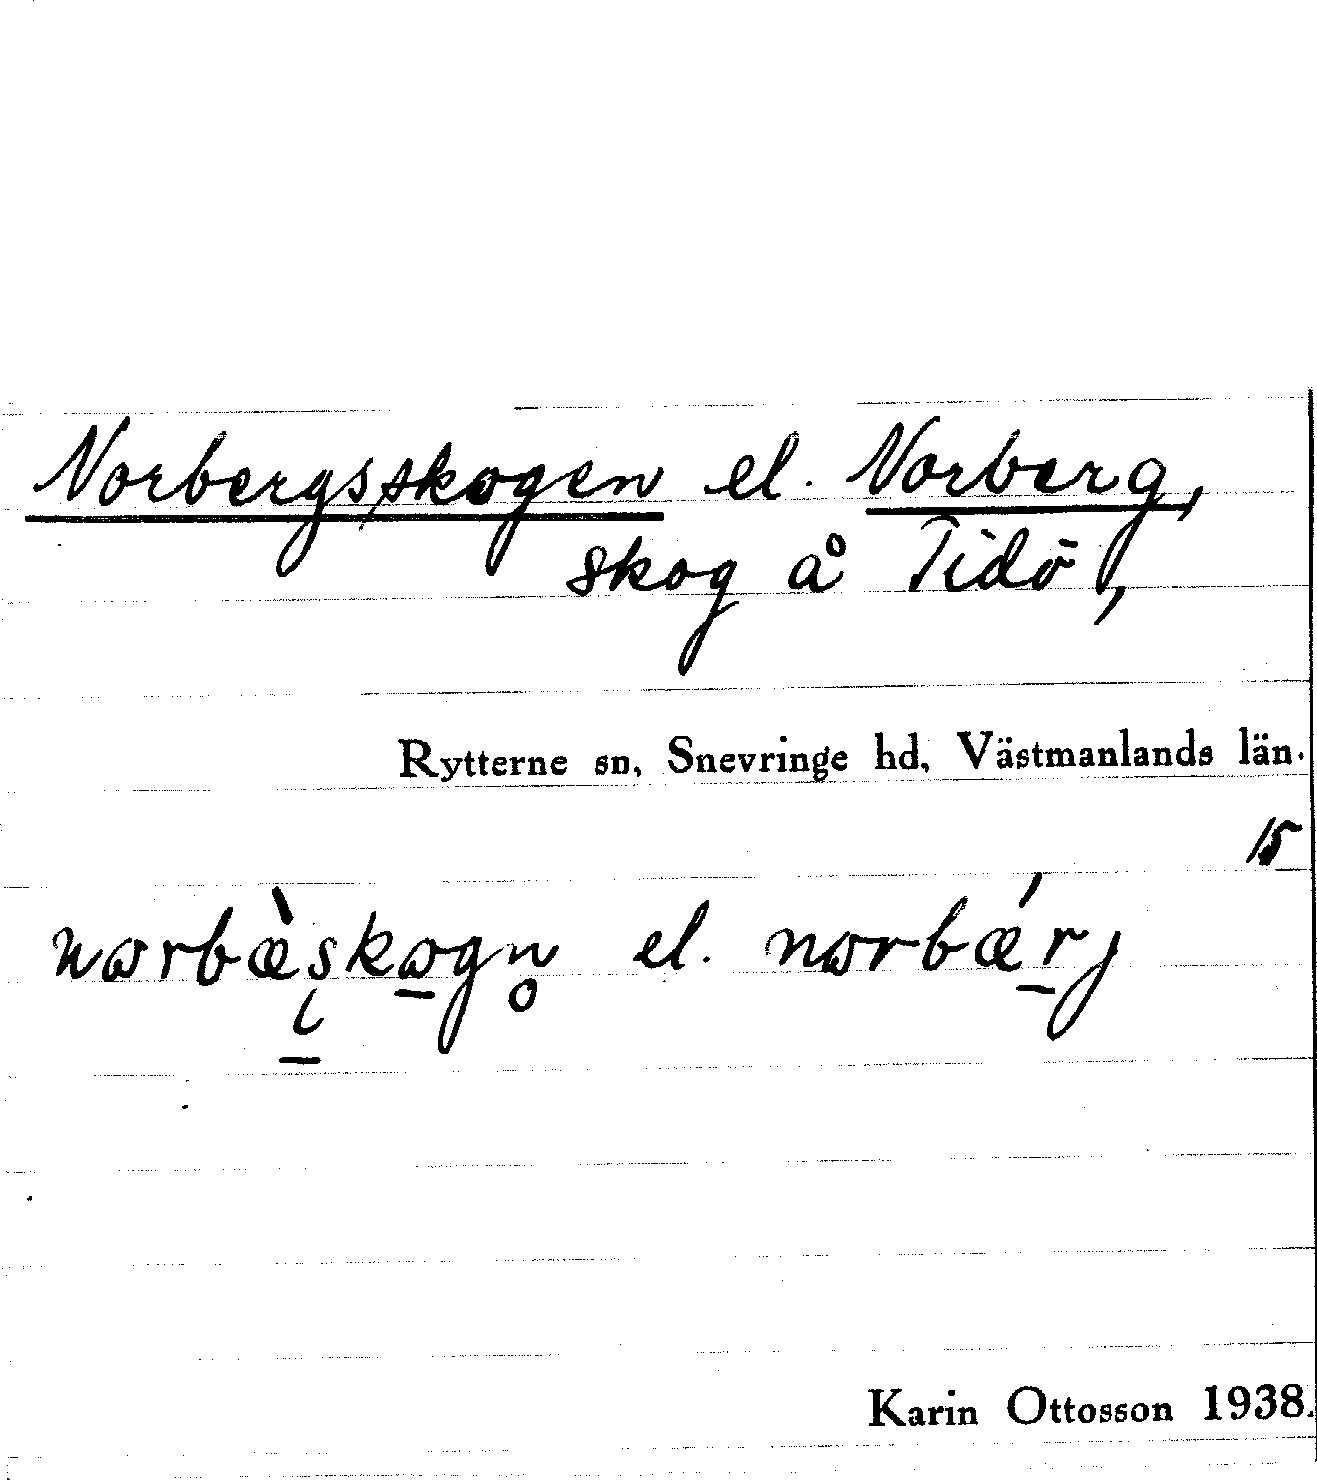 Norbergs/skogen el. Norberg,
skog å Tidö,
Rytterne sn, Snevringe hd, Västmanlands län.
15
norbæ̀skogn̥ el. norbǽrj
Karin Ottosson 1938.